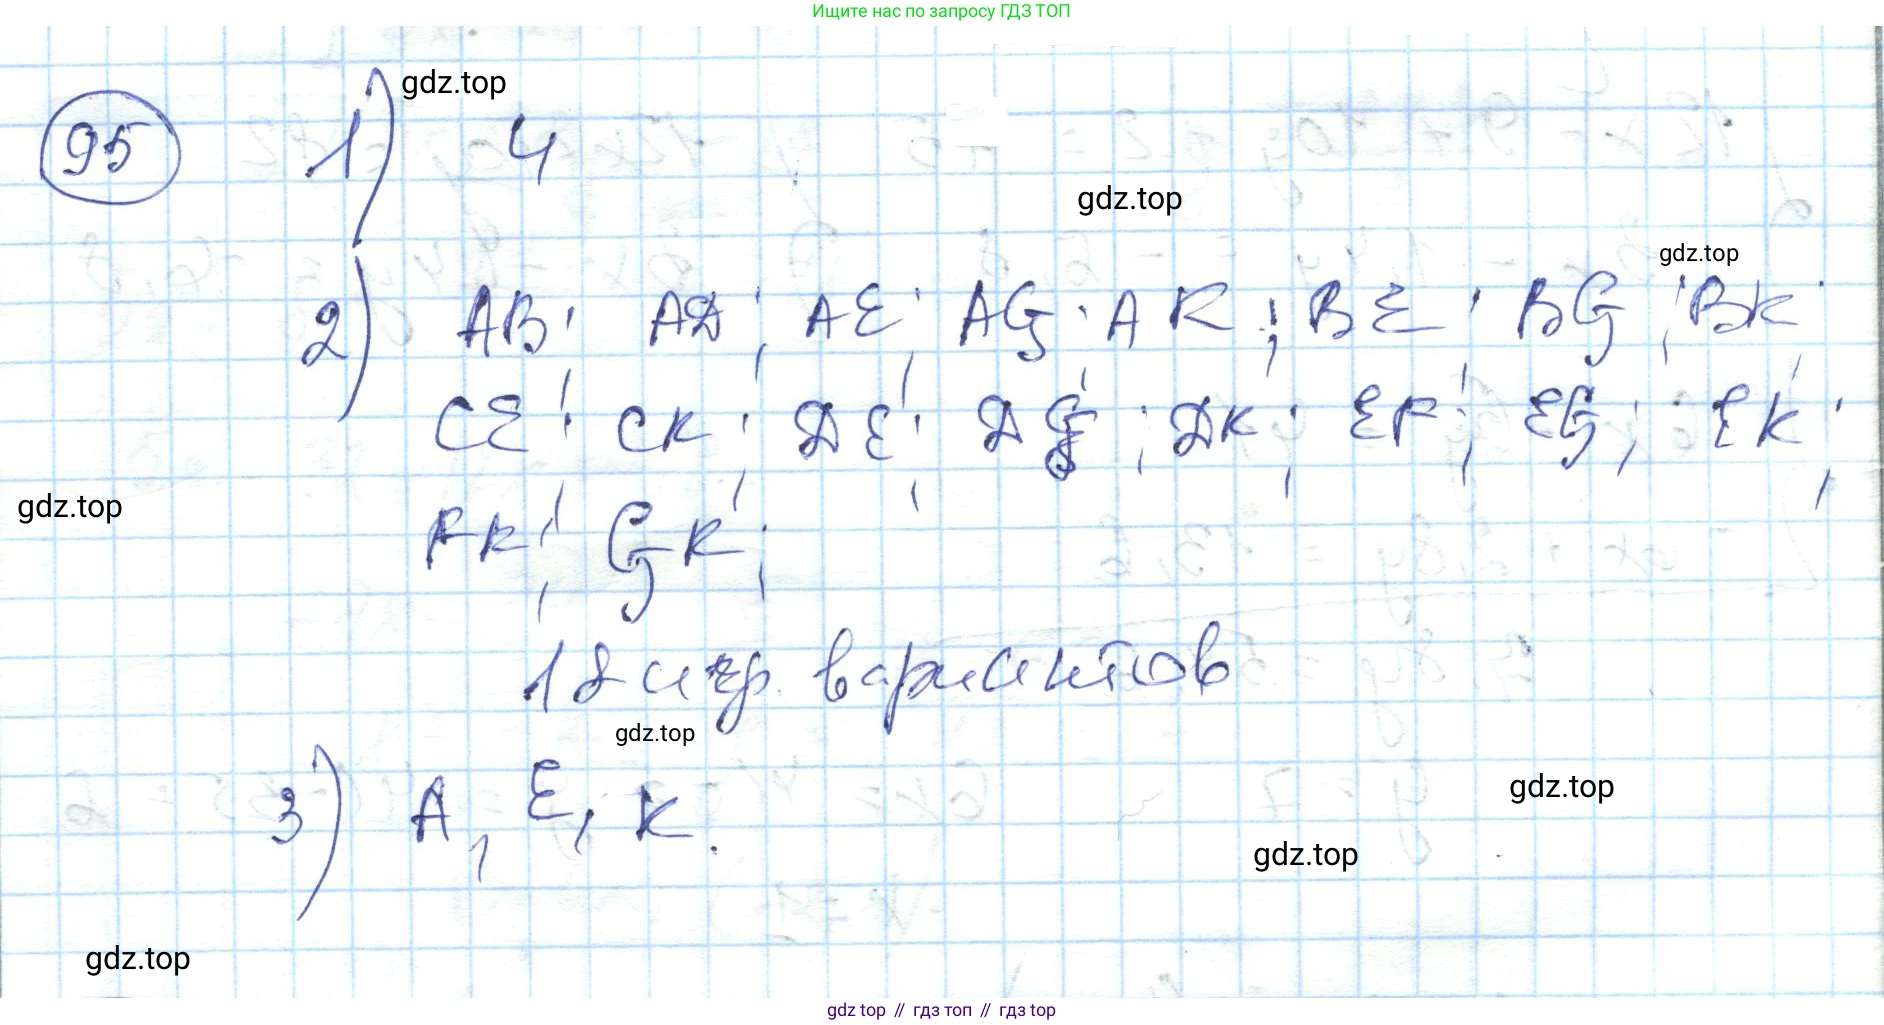 Ищите нас по запросу ГДЗ ТОП
gdz.top
95 1) 4
gdz.top
gdz.top
2) AB; AD; AE; AG; AK; BE; BG; BK;
CE; CK; DE; DG; DK; EF; EG; EK;
gdz.top
FK; GK;
18 вариантов
gdz.top
3) A, E, K.
gdz.top
gdz.top
gdz.top
gdz top // гдз топ // гдз top